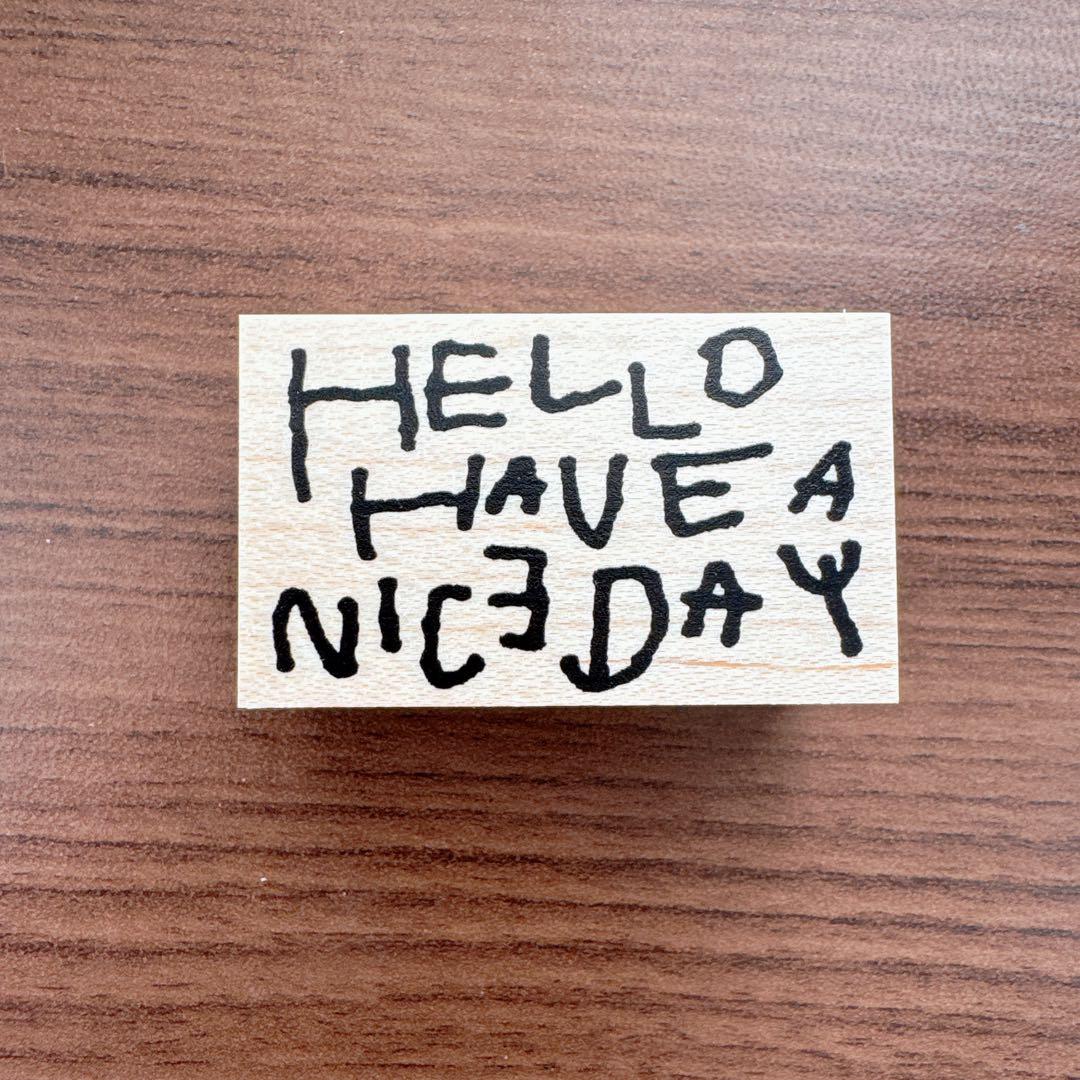 HELLO
HAVE A
NICE DAY